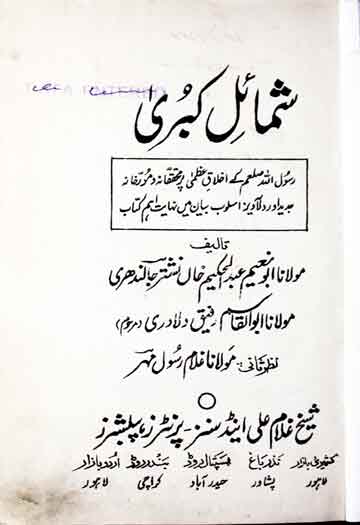 شمائلِ کبریٰ
رسول اللہ صلعم کے اخلاقِ عظمیٰ پر محققانہ و مؤرخانہ
جدید اور دلآویز اسلوب بیان میں نہایت اہم کتاب
تالیف
مولانا ابو نعیم عبدالحکیم خاں نشتر جالندھری
مولانا ابوالقاسم رفیق دلاوری (مرحوم)
نظرثانی: مولانا غلام رسول مہر
شیخ غلام علی اینڈ سنز - پرنٹرز، پبلشرز
کشمیری بازار نذر باغ ہسپتال روڈ بندر روڈ اردو بازار
لاہور پشاور حیدرآباد کراچی لاہور